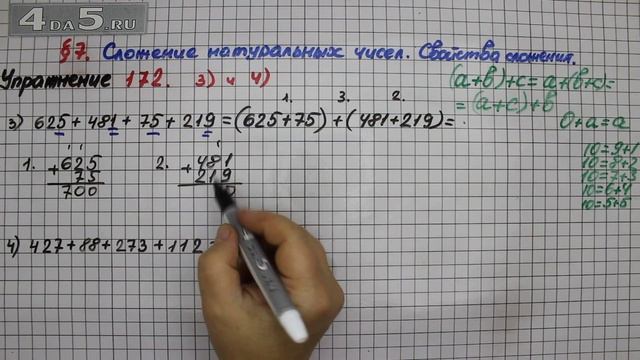 4DA5.RU
§7. Сложение натуральных чисел. Свойства сложения.
Упражнение 172. 3) и 4)
(a+b)+c=a+(b+c)=
=(a+c)+b
0+a=a
1. 3. 2.
3) 625+481+75+219=(625+75)+(481+219)=
1. +625
75
700
2. +481
219
0
10=9+1
10=8+2
10=7+3
10=6+4
10=5+5
4) 427+88+273+112=